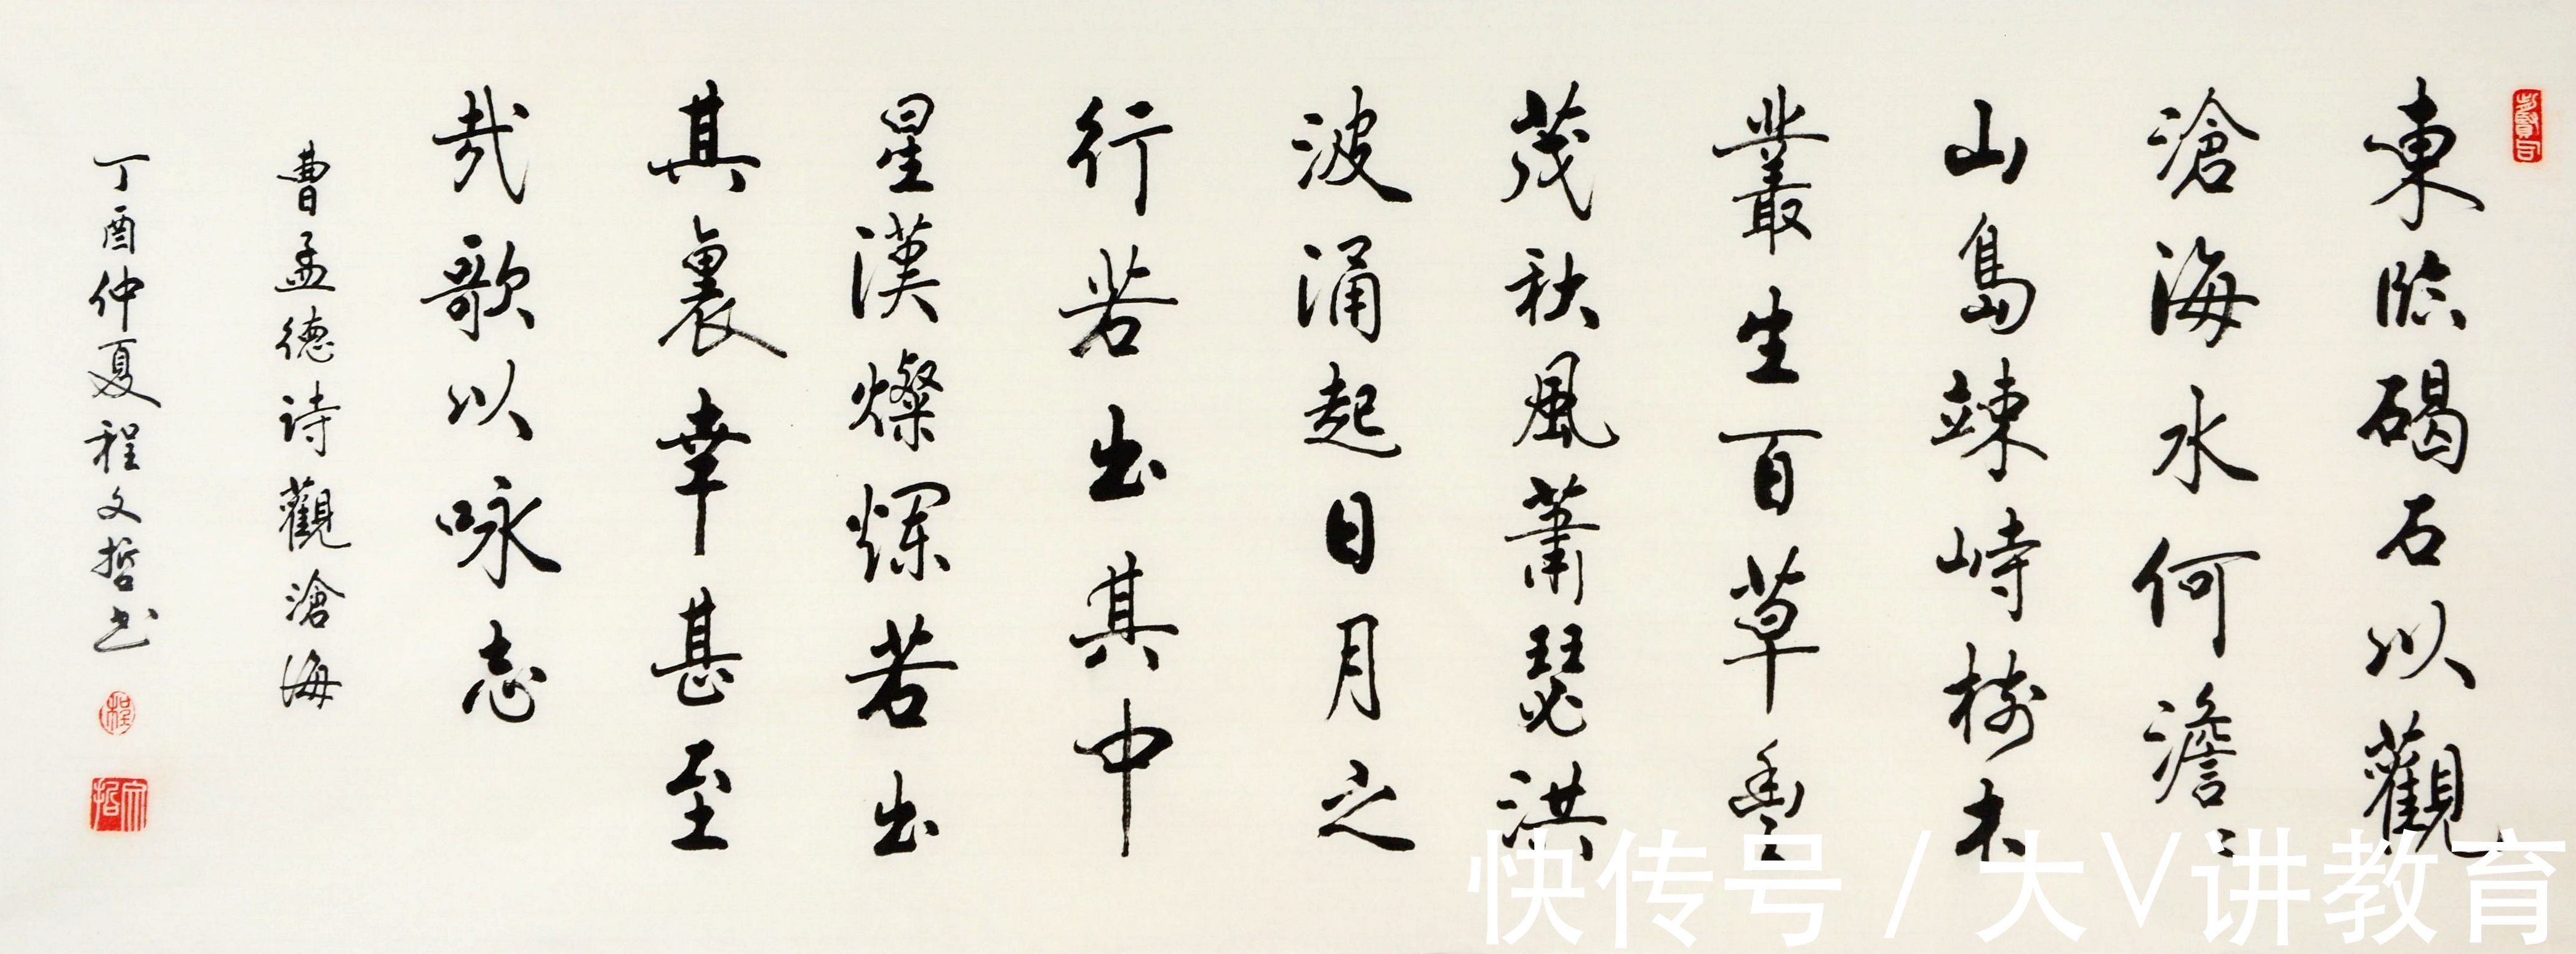 東臨碣石以觀
滄海水何澹々
山島竦峙樹木
叢生百草豊
茂秋風蕭瑟洪
波涌起日月之
行若出其中
星漢燦爛若出
其裏幸甚至
哉歌以咏志
曹孟德诗觀滄海
丁酉仲夏程文哲书
程
文哲
快传号 / 大V讲教育